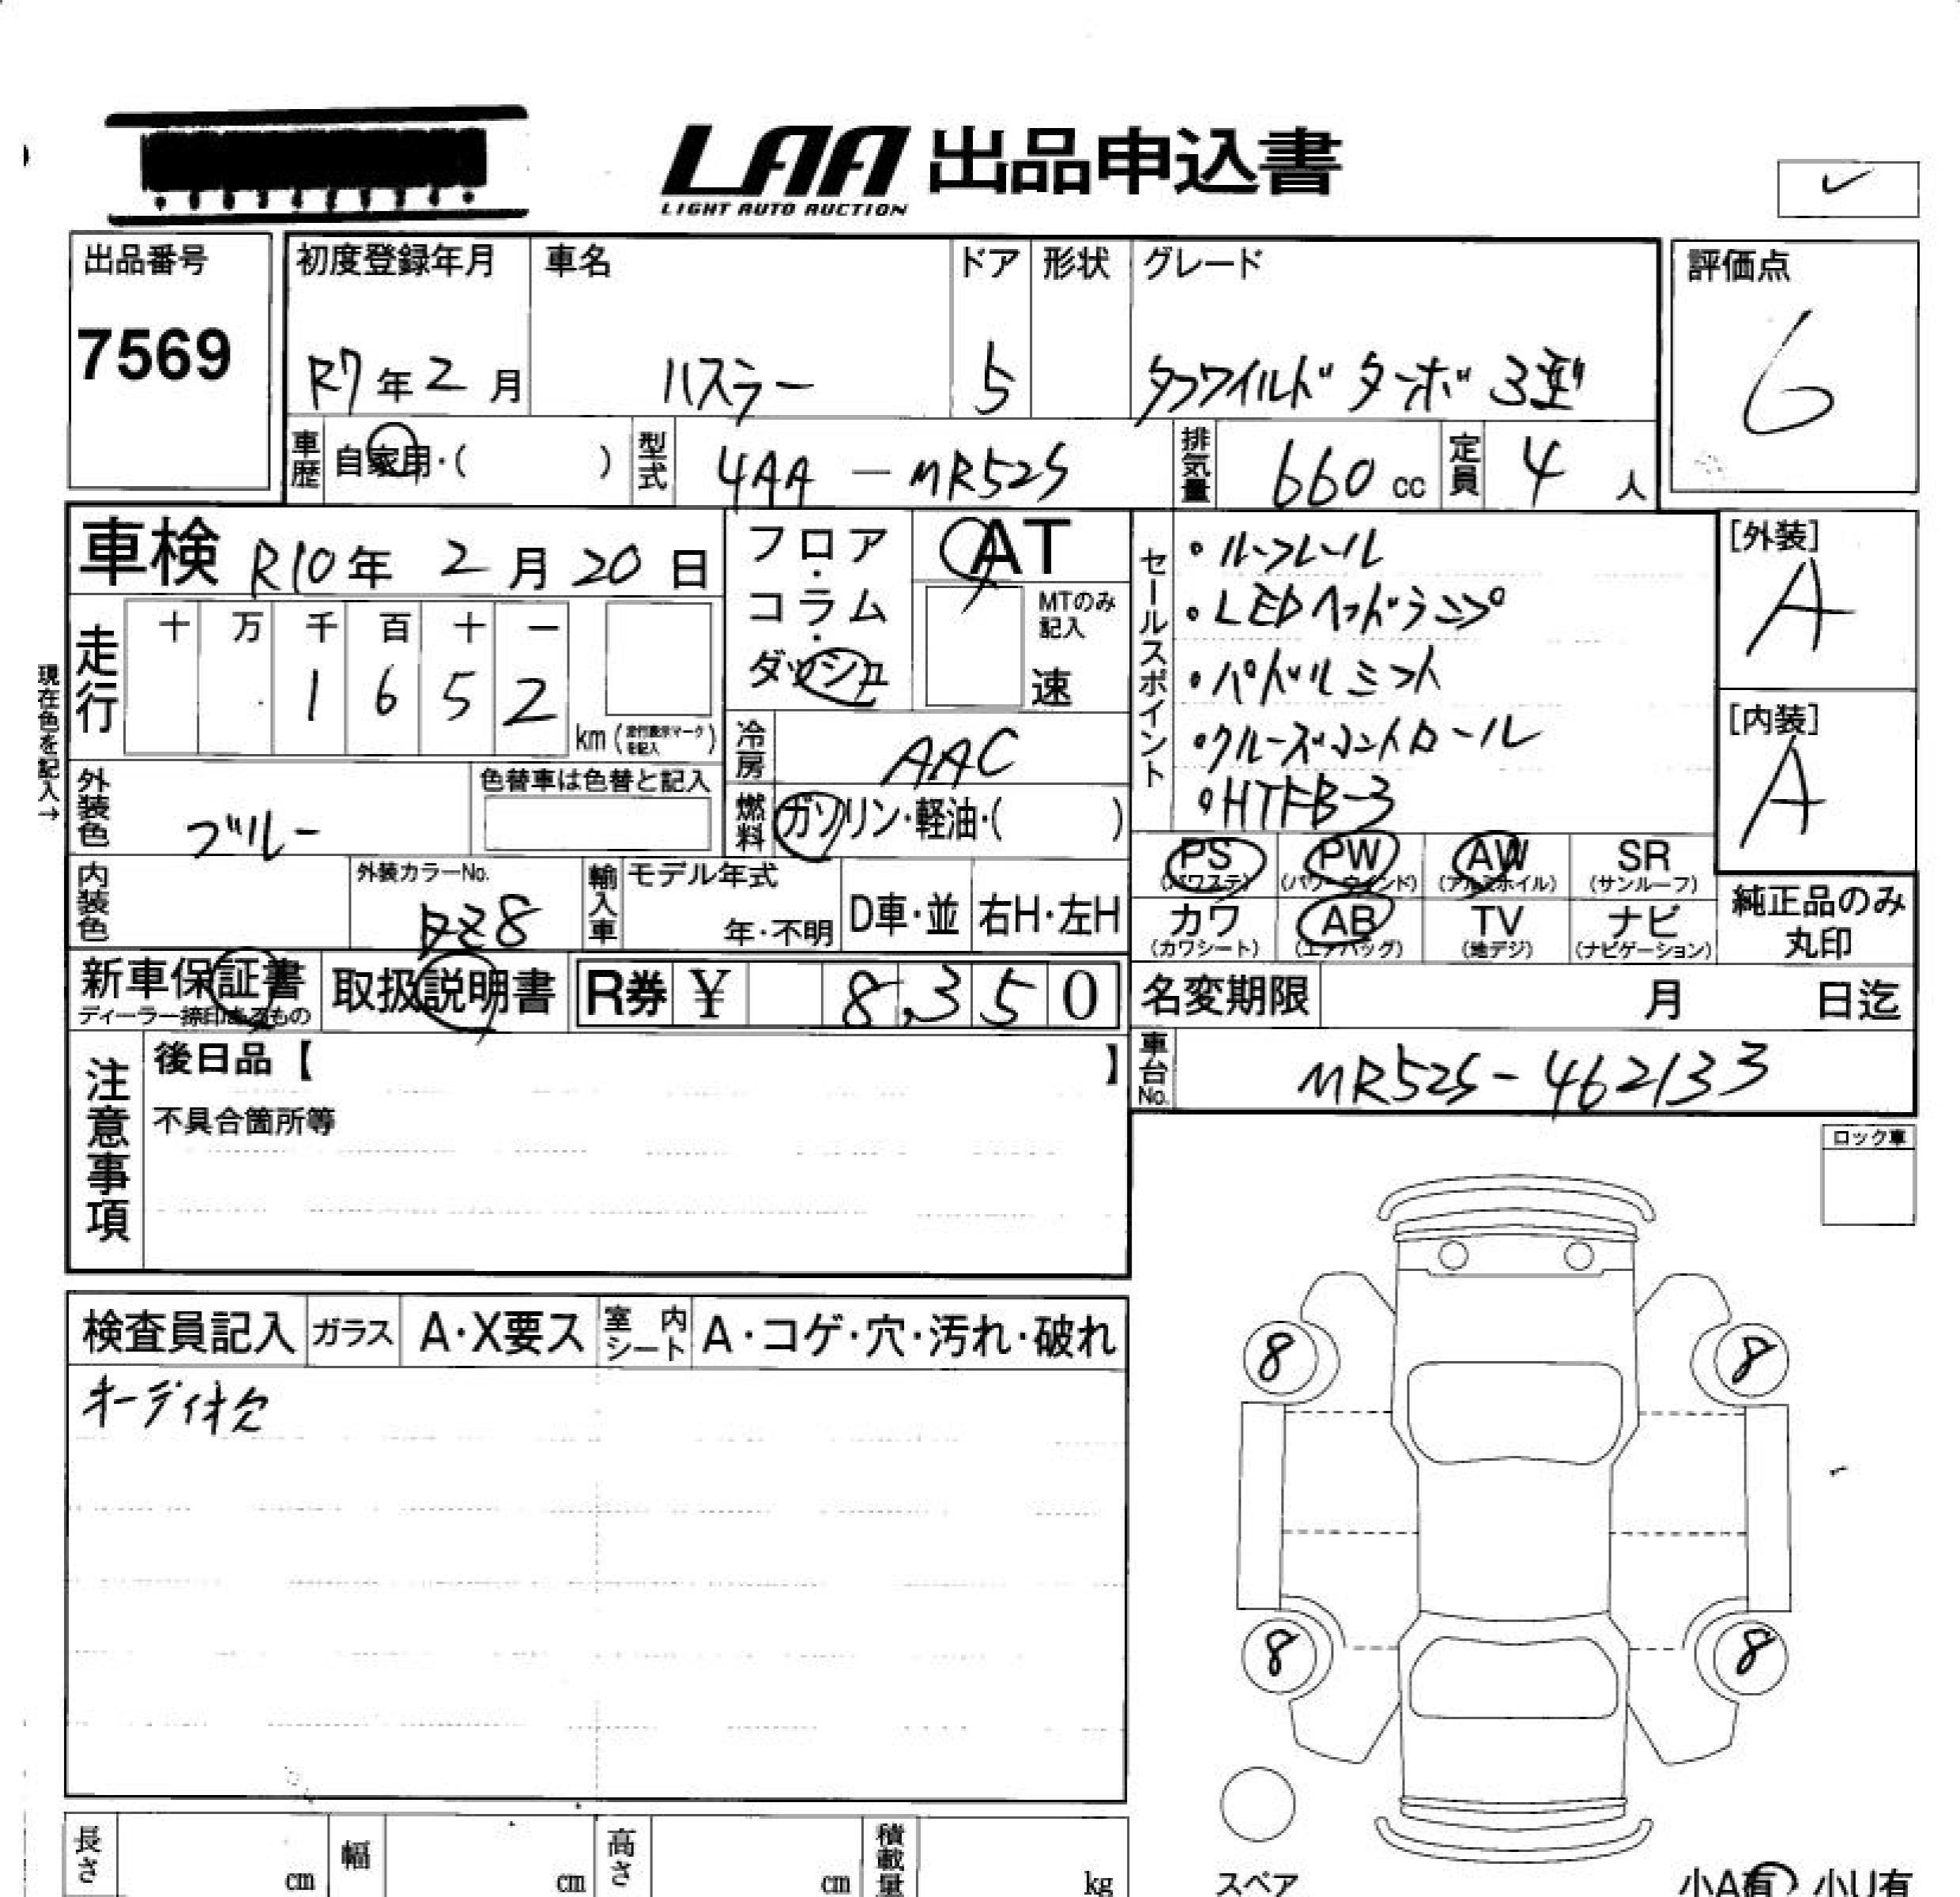 LAA 出品申込書
LIGHT AUTO AUCTION
出品番号
7569
初度登録年月
R7年2月
車名
ハスラー
ドア
5
形状
グレード
タフワイルド ターボ 3型
評価点
6
車歴
自家用・( )
型式
4AA-MR52S
排気量
660cc
定員
4人
車検 R10年 2月 20日
フロア・コラム・ダッシュ
AT
MTのみ記入
速
セールスポイント
・ルーフレール
・LEDヘッドランプ
・パドルシフト
・クルーズコントロール
・HTFB-3
[外装]
A
[内装]
A
現在色を記入→
走行
十 万 千 百 十 一
1 6 5 2
km(走行表示マークを記入)
冷房
AAC
外装色
ブルー
色替車は色替と記入
燃料
ガソリン・軽油・( )
内装色
外装カラーNo.
輸入車
モデル年式
年・不明
D車・並
右H・左H
PS (パワステ)
PW (パワーウインド)
AW (アルミホイル)
SR (サンルーフ)
カワ (カワシート)
AB (エアバッグ)
TV (地デジ)
ナビ (ナビゲーション)
純正品のみ
丸印
新車保証書
ディーラー捺印あるもの
取扱説明書
R券 ¥ 8,350
名変期限 月 日迄
車台No.
MR52S-462133
注意事項
後日品【 】
不具合箇所等
ロック車
検査員記入
ガラス
A・X要ス
室内シート
A・コゲ・穴・汚れ・破れ
オーディオ欠
8
8
8
8
長さ cm
幅 cm
高さ cm
積載量 kg
スペア
小A有 小U有